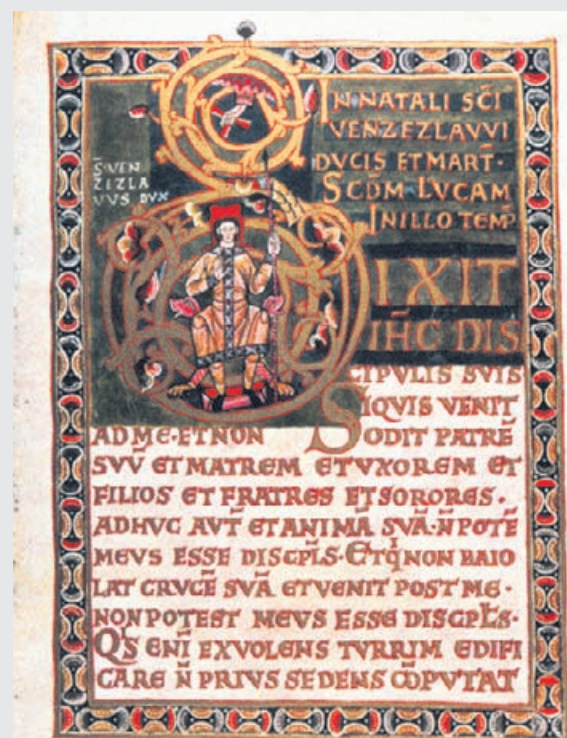 S̄ VEN
ZIZLA
VVS DVX
IN NATALI SC̄I
VENZEZLAVVI
DVCIS ET MART̄·
SCD̄M LVCAM
IN ILLO TEMP̄
DIXIT
IH̄C DIS
CIPVLIS SVIS
SIQVIS VENIT
AD ME·ET NON ODIT PATRĒ
SVV̄ ET MATREM ET VXOREM ET
FILIOS ET FRATRES ET SORORES·
ADHVC AVT̄ ET ANIMĀ SVĀ·N̄ POTĒ
MEVS ESSE DISCPL̄S·ET Q̄I NON BAIO
LAT CRVCĒ SVĀ ET VENIT POST ME·
NON POTEST MEVS ESSE DISCPL̄S·
QI̅S ENĪ EX VOLENS TVRRIM EDIFI
CARE N̄ PRIVS SEDENS CŌPVTAT